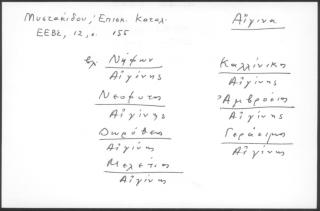 Μυστακίδου, Ἐπισκ. Καταλ.
ΕΕΒΣ, 12, σ. 155
Αἴγινα
βλ. Νήφων
Αἰγίνης
Νεόφυτος
Αἰγίνης
Δωρόθεος
Αἰγίνης
Μελέτιος
Αἰγίνης
Καλλίνικος
Αἰγίνης
Ἀμβρόσιος
Αἰγίνης
Γεράσιμος
Αἰγίνης